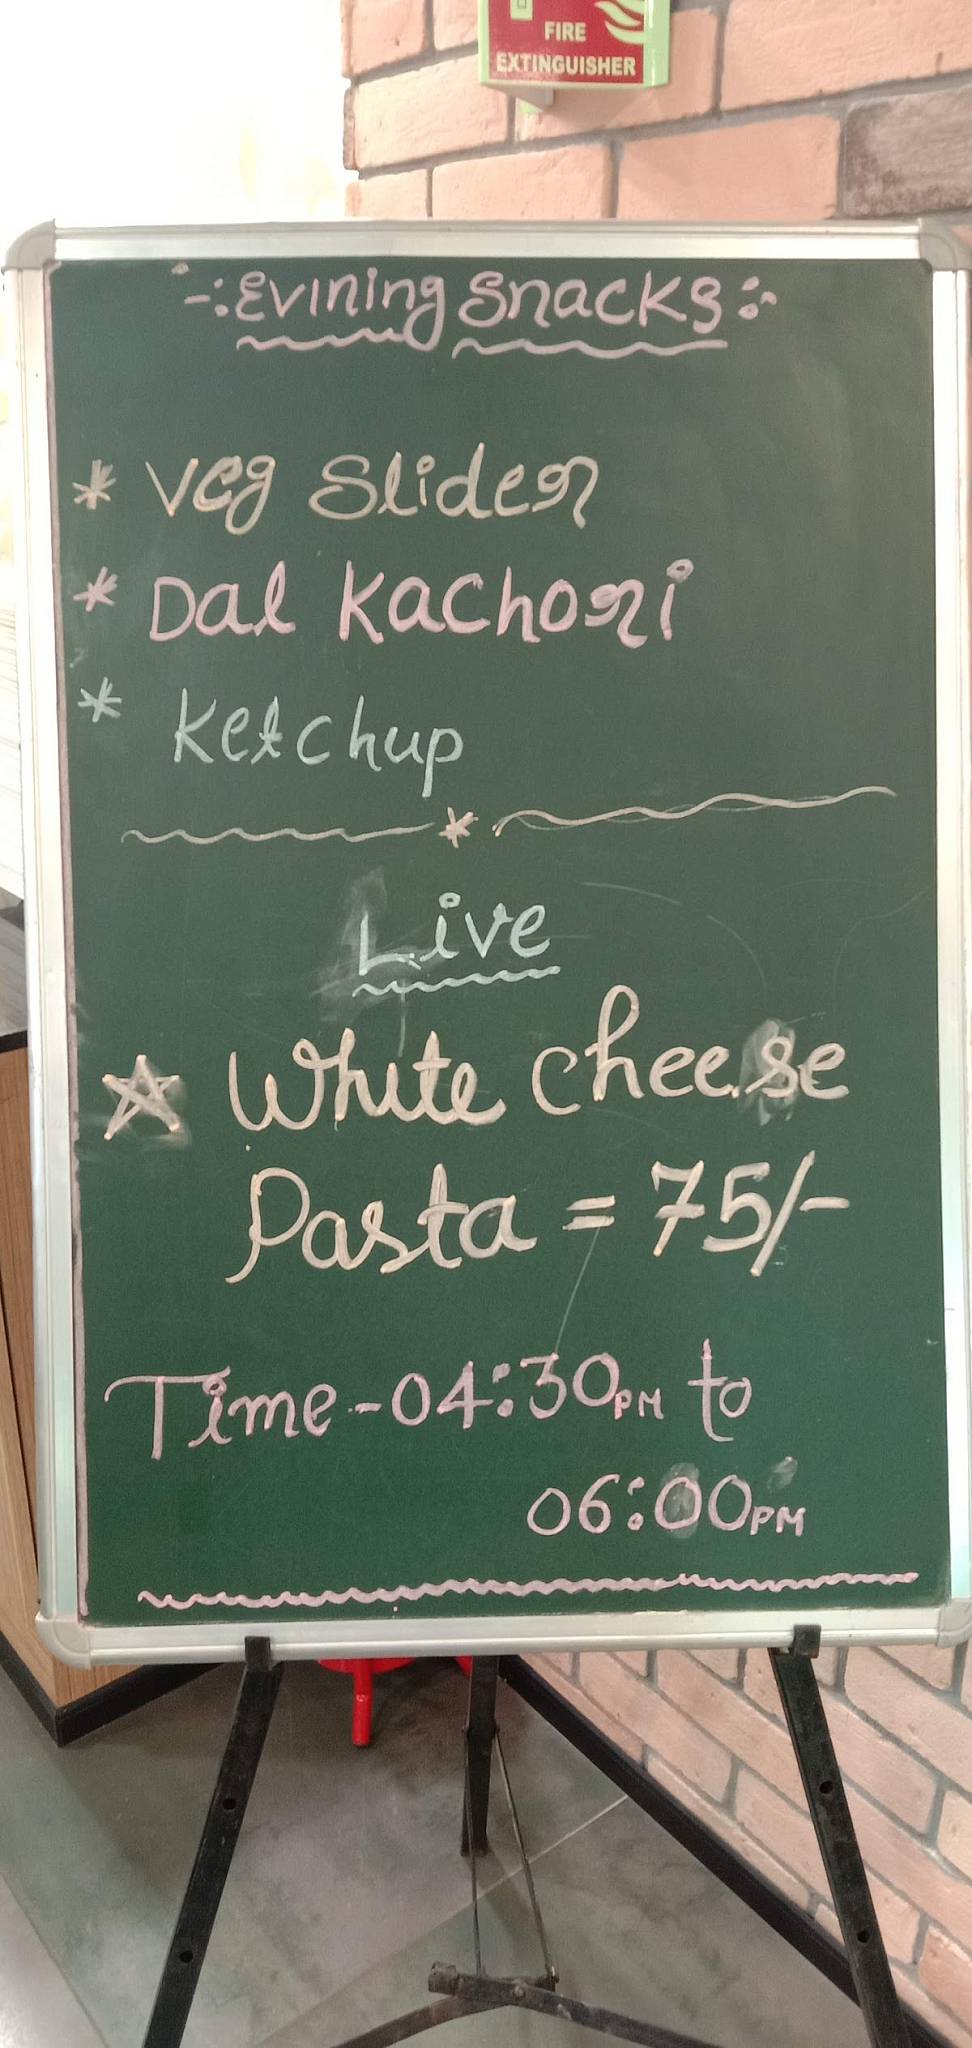 FIRE
EXTINGUISHER
-:Evining Snacks:-
* Veg Slider
* Dal Kachori
* Ketchup
*
Live
☆ White cheese
Pasta = 75/-
Time - 04:30PM to
06:00PM